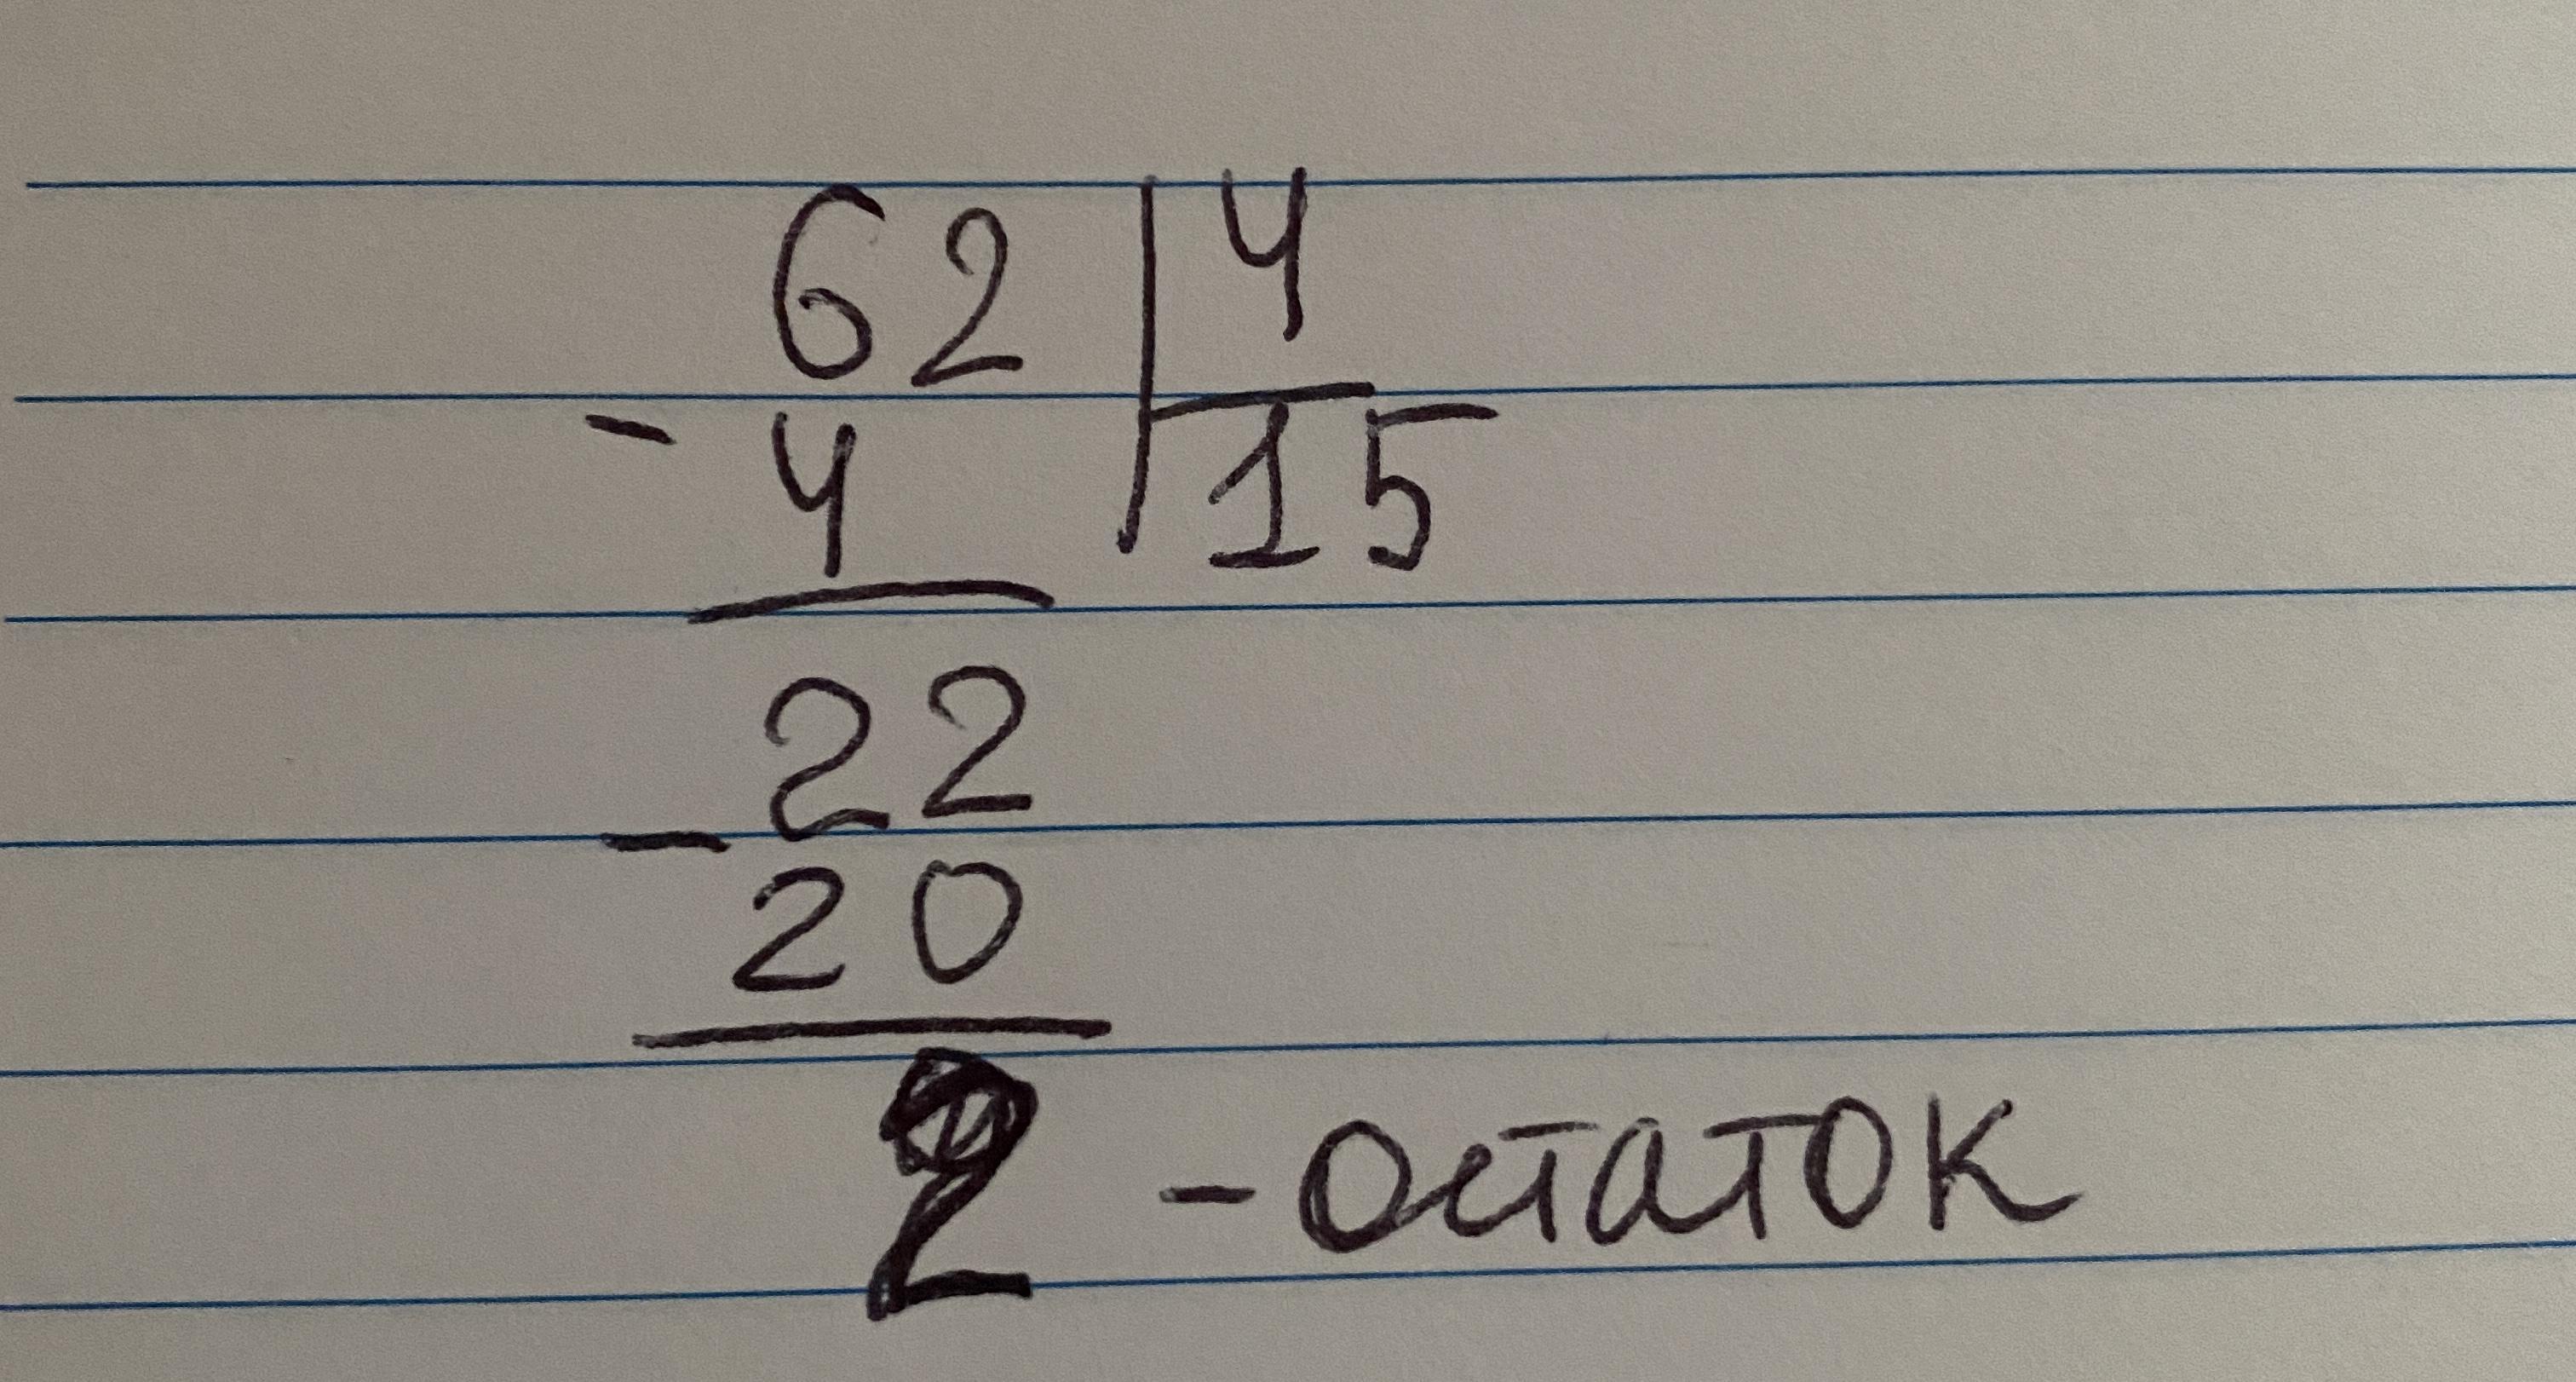 62 | 4
- 4 | 15
22
- 20
2 - остаток